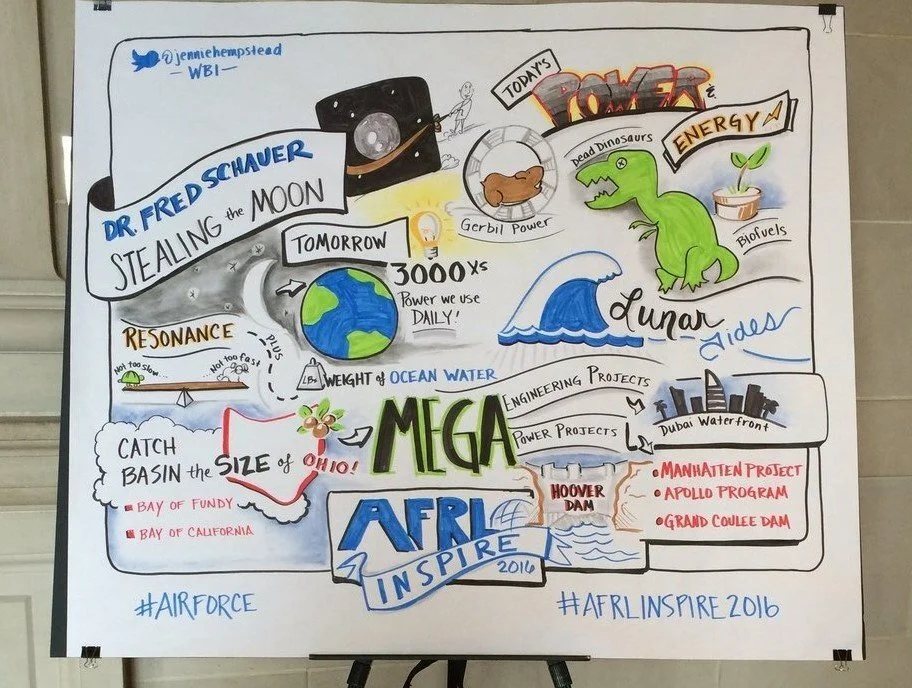 @jenniehempstead
-WBI-
DR. FRED SCHAUER
STEALING the MOON
TODAY'S
POWER &
ENERGY
Gerbil Power
Dead Dinosaurs
Biofuels
TOMORROW
3000 XS
Power we use
DAILY!
Lunar
Tides
RESONANCE
Not too slow
Not too fast
PLUS
LBs
WEIGHT of OCEAN WATER
CATCH
BASIN the SIZE of OHIO!
BAY OF FUNDY
BAY OF CALIFORNIA
MEGA
ENGINEERING PROJECTS
Dubai Waterfront
POWER PROJECTS
HOOVER
DAM
MANHATTEN PROJECT
APOLLO PROGRAM
GRAND COULEE DAM
AFRL
INSPIRE
2016
#AIRFORCE
#AFRLINSPIRE2016